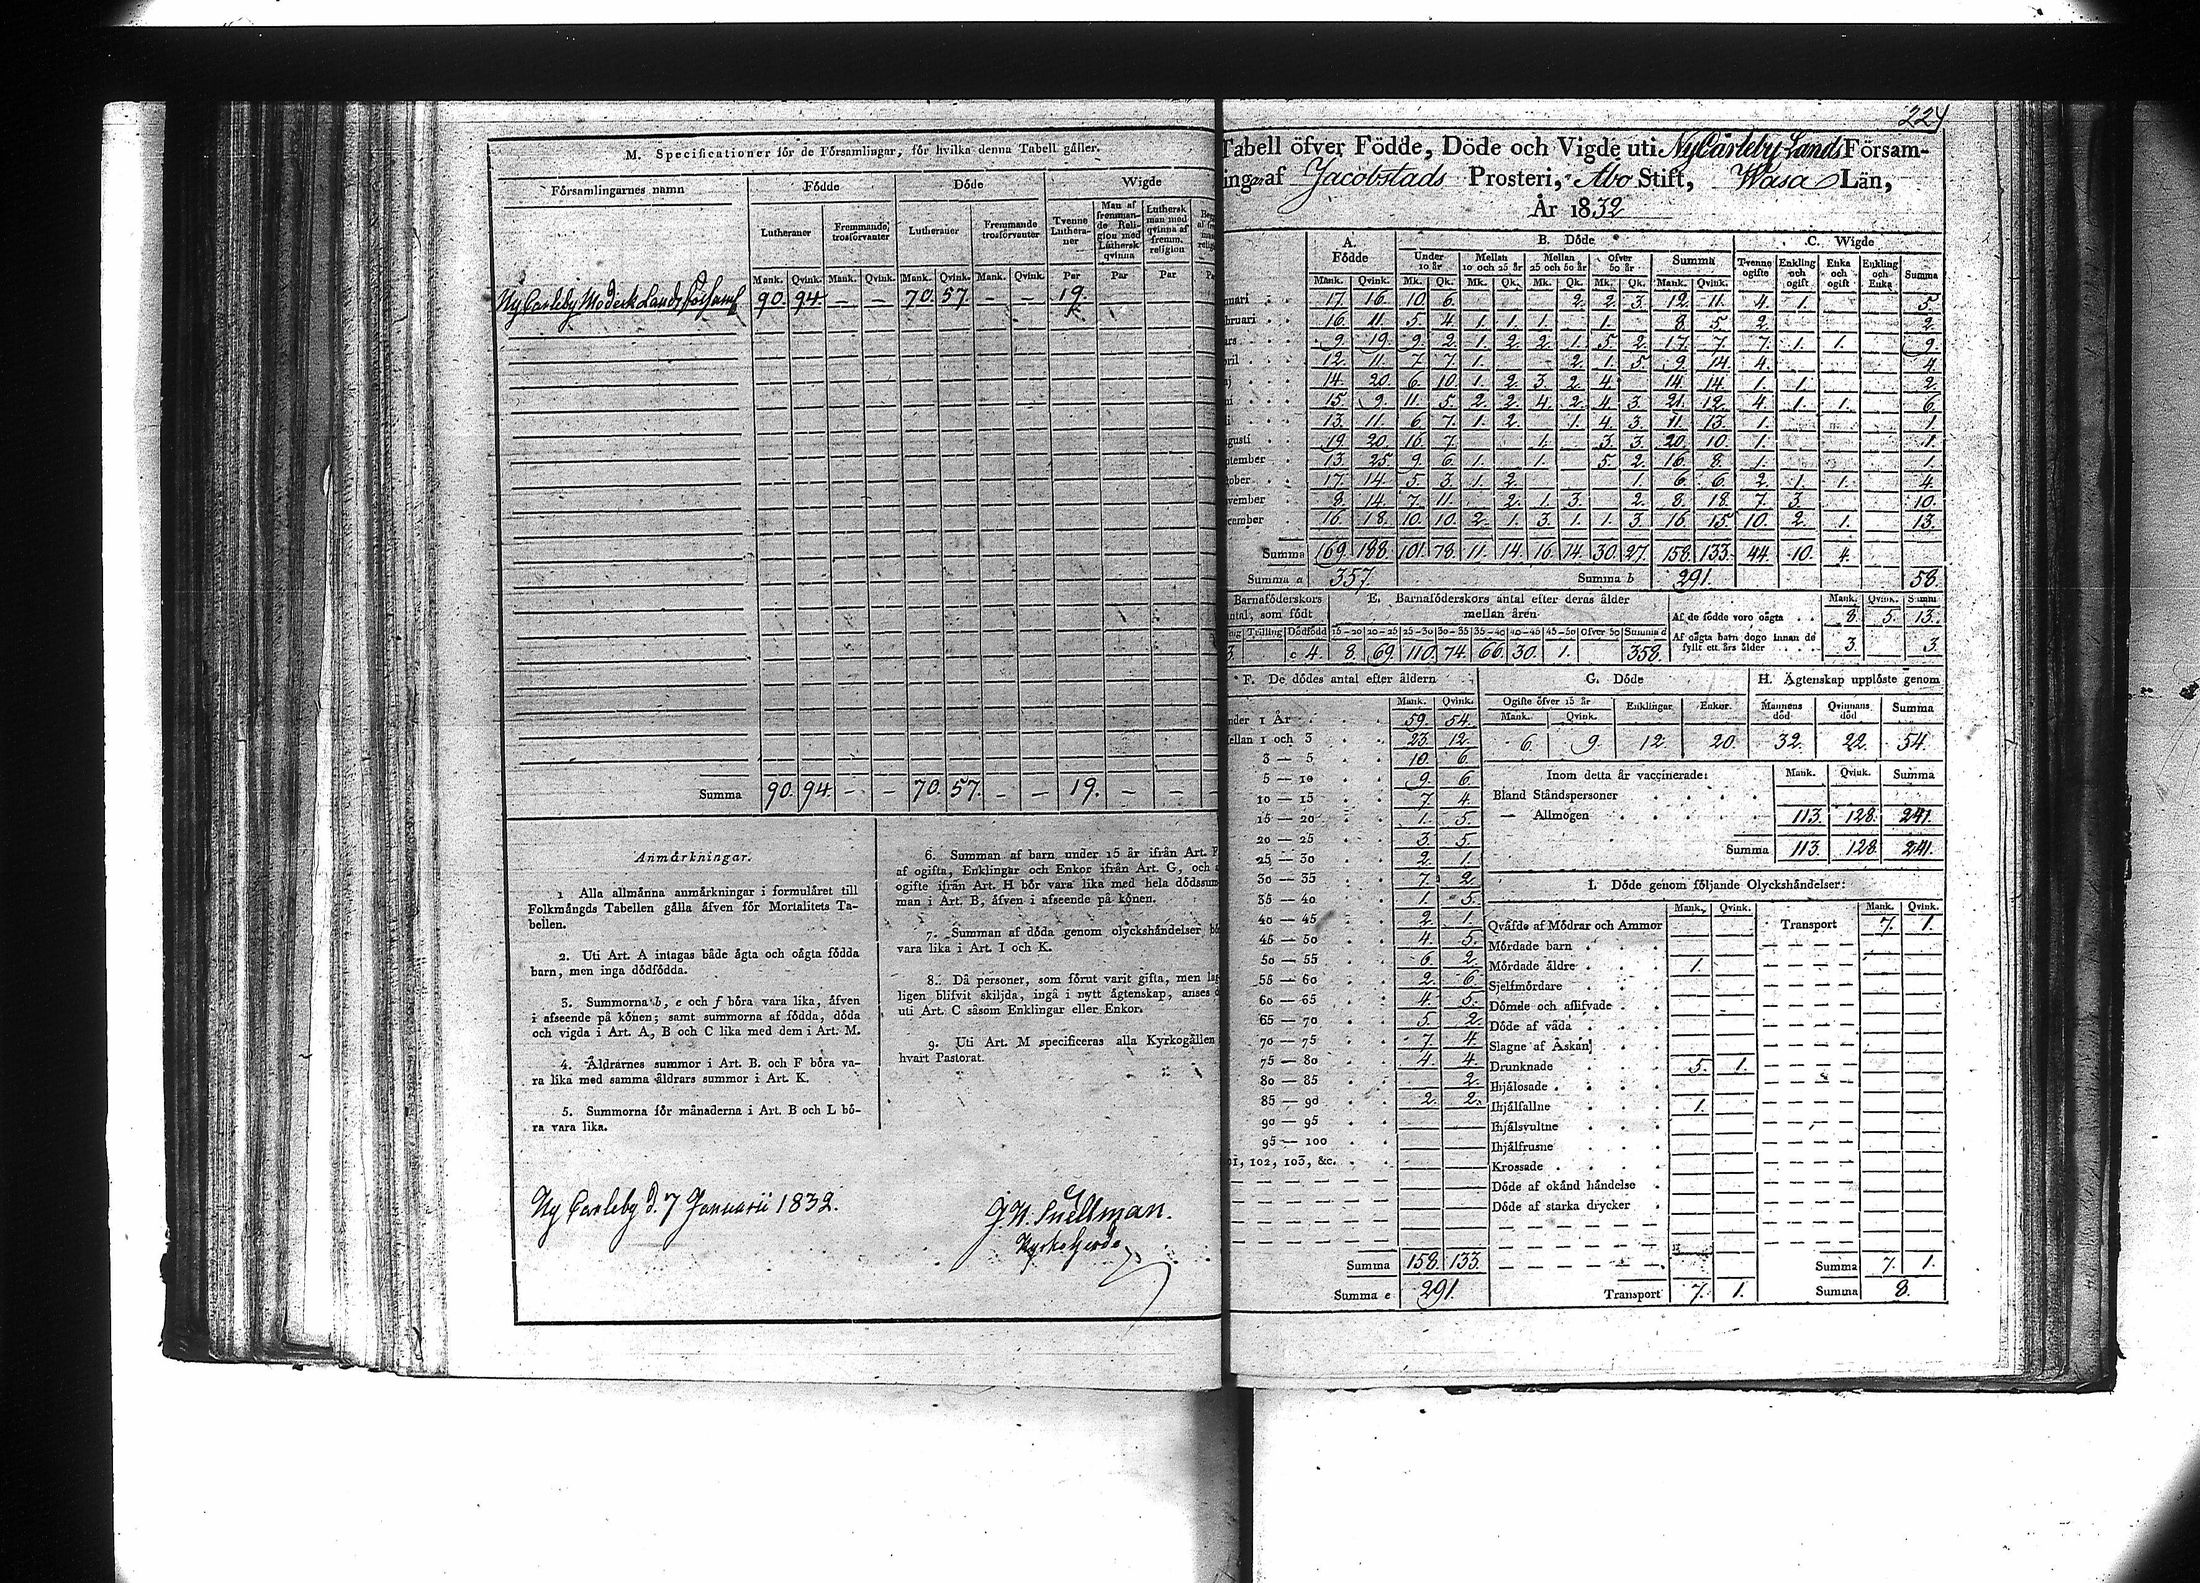 M. Specificationer för de Församlingar, för hvilka denna Tabell gäller.
Församlingarnes namn Födde Döde Wigde
Lutheraner Fremmande trosförvanter Lutheraner Fremmande trosförvanter Tvenne Lutheraner Man af fremmande Religion med Luthersk qvinna Luthersk man med qvinna af fremm. religion
Mank. Qvink. Mank. Qvink. Mank. Qvink. Mank. Qvink. Par Par Par
Ny Carleby Moderk Lands församl 90. 94. — — 70. 57. — — 19.
Summa 90. 94. — — 70. 57. — — 19. — — —
Anmärkningar.
1 Alla allmänna anmärkningar i formuläret till
Folkmängds Tabellen gälla äfven för Mortalitets Ta-
bellen.
2. Uti Art. A intagas både ägta och oägta födda
barn, men inga dödfödda.
3. Summorna b, e och f böra vara lika, äfven
i afseende på könen; samt summorna af födda, döda
och vigda i Art. A, B och C lika med dem i Art. M.
4. Åldrarnes summor i Art. B. och F böra va-
ra lika med samma åldrars summor i Art. K.
5. Summorna för månaderna i Art. B och L bö-
ra vara lika.
6. Summan af barn under 15 år ifrån Art. F
af ogifta, Enklingar och Enkor ifrån Art. G, och
ogifte ifrån Art. H bör vara lika med hela dödssum
man i Art. B, äfven i afseende på könen.
7. Summan af döda genom olyckshändelser bö
vara lika i Art. I och K.
8. Då personer, som förut varit gifta, men lag
ligen blifvit skiljda, ingå i nytt ägtenskap, anses
uti Art. C såsom Enklingar eller Enkor.
9. Uti Art. M specificeras alla Kyrkogällen
hvart Pastorat.
Ny Carleby d. 7 Januarii 1832.
J. W. Snellman.
Kyrkoherde
224
Tabell öfver Födde, Döde och Vigde uti NyCarleby Lands Försam-
ingar af Jacobstads Prosteri, Åbo Stift, Wasa Län,
År 1832
A. Födde B. Döde C. Wigde
Under 10 år Mellan 10 och 25 år Mellan 25 och 50 år Öfver 50 år Summa Tvenne ogifte Enkling och ogift Enka och ogift Enkling och Enka Summa
Mank. Qvink. Mk. Qk. Mk. Qk. Mk. Qk. Mk. Qk. Mank. Qvink.
nuari 17. 16. 10. 6. 2. 2. 3. 12. 11. 4. 1. 5.
bruari 16. 11. 5. 4. 1. 1. 1. 1. 8. 5. 2. 2.
ars 9. 19. 9. 2. 1. 2. 2. 1. 5. 2. 17. 7. 7. 1. 1. 9.
pril 12. 11. 7. 7. 1. 2. 1. 5. 9. 14. 4. 4.
aj 14. 20. 6. 10. 1. 2. 3. 2. 4. 14. 14. 1. 1. 2.
ni 15. 9. 11. 5. 2. 2. 4. 2. 4. 3. 21. 12. 4. 1. 1. 6.
li 13. 11. 6. 7. 1. 2. 1. 4. 3. 11. 13. 1. 1.
ugusti 19. 20. 16. 7. 1. 3. 3. 20. 10. 1. 1.
ptember 13. 25. 9. 6. 1. 1. 5. 2. 16. 8. 1. 1.
tober 17. 14. 5. 3. 1. 2. 1. 6. 6. 2. 1. 1. 4.
vember 8. 14. 7. 11. 2. 1. 3. 2. 8. 18. 7. 3. 10.
ecember 16. 18. 10. 10. 2. 1. 3. 1. 1. 3. 16. 15. 10. 2. 1. 13.
Summa 169. 188. 101. 78. 11. 14. 16. 14. 30. 27. 158. 133. 44. 10. 4.
Summa a 357. Summa b 291. 58.
Barnaföderskors antal, som födt E. Barnaföderskors antal efter deras ålder mellan åren Mank. Qvink. Summa
Trilling Dödfödd 15–20 20–25 25–30 30–35 35–40 40–45 45–50 Öfver 50 Summa d
3. c 4. 8. 69. 110. 74. 66. 30. 1. 358.
Af de födde voro oägta 8. 5. 13.
Af oägta barn dogo innan de fyllt ett års ålder 3. 3.
F. De dödes antal efter åldern
Mank. Qvink.
nder 1 År 59. 54.
ellan 1 och 3 23. 12.
3 — 5 10. 6.
5 — 10 9. 6
10 — 15 7. 4.
15 — 20 1. 5.
20 — 25 3. 5.
25 — 30 2. 1.
30 — 35 7. 2.
35 — 40 1. 5.
40 — 45 2. 1.
45 — 50 4. 5.
50 — 55 6. 2.
55 — 60 2. 6.
60 — 65 4. 5.
65 — 70 5. 2.
70 — 75 7. 4.
75 — 80 4. 4.
80 — 85 2.
85 — 90 2. 2.
90 — 95
95 — 100
01, 102, 103, &c.
Summa 158. 133.
Summa e 291.
G. Döde H. Ägtenskap upplöste genom
Ogifte öfver 15 år Enklingar Enkor. Mannens död Qvinnans död Summa
Mank. Qvink.
6. 9. 12. 20. 32. 22. 54.
Inom detta år vaccinerade: Mank. Qvink. Summa
Bland Ståndspersoner
— Allmogen 113. 128. 241.
Summa 113. 128. 241.
I. Döde genom följande Olyckshändelser:
Mank. Qvink. Mank. Qvink.
Qväfde af Mödrar och Ammor Transport 7. 1.
Mördade barn
Mördade äldre 1.
Sjelfmördare
Dömde och aflifvade
Döde af våda
Slagne af Åskan
Drunknade 5. 1.
Ihjälosade
Ihjälfallne 1.
Ihjälsvultne
Ihjälfrusne
Krossade
Döde af okänd händelse
Döde af starka drycker
Summa 7. 1.
Transport 7. 1. Summa 8.